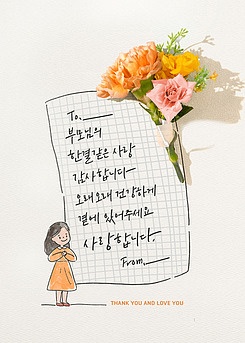 To.____
부모님의
한결같은 사랑
감사합니다
오래오래 건강하게
곁에 있어주세요
사랑합니다.
From.____
THANK YOU AND LOVE YOU